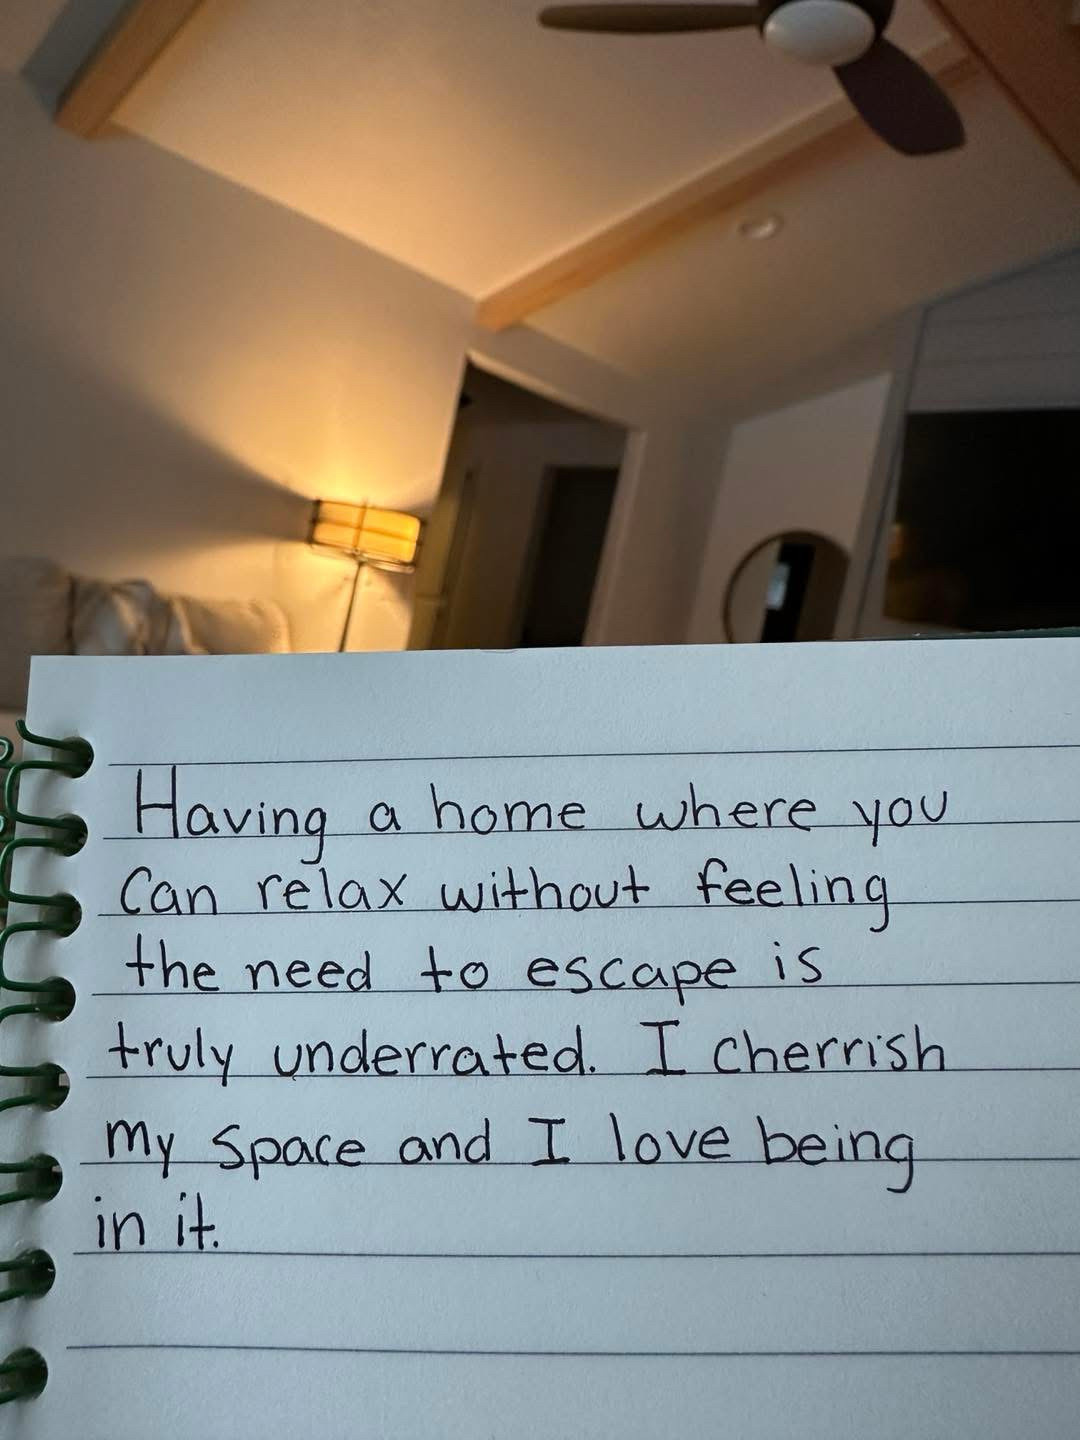 Having a home where you
can relax without feeling
the need to escape is
truly underrated. I cherrish
my space and I love being
in it.